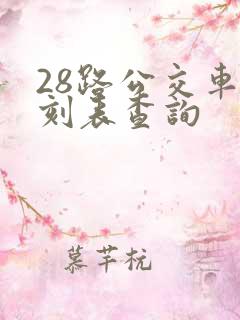 28路公交車
刻表查詢
慕芊杭